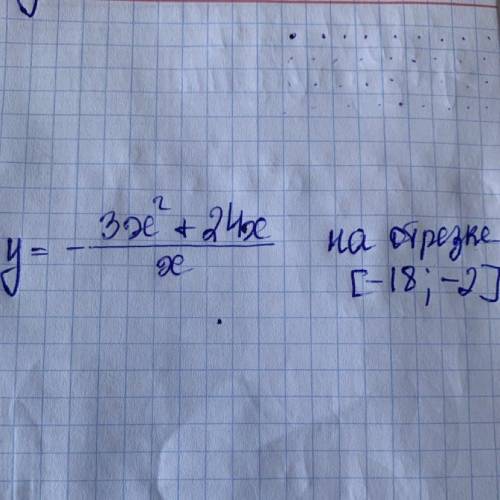 y = - \frac{3x^2 + 24x}{x} на отрезке
[-18; -2]